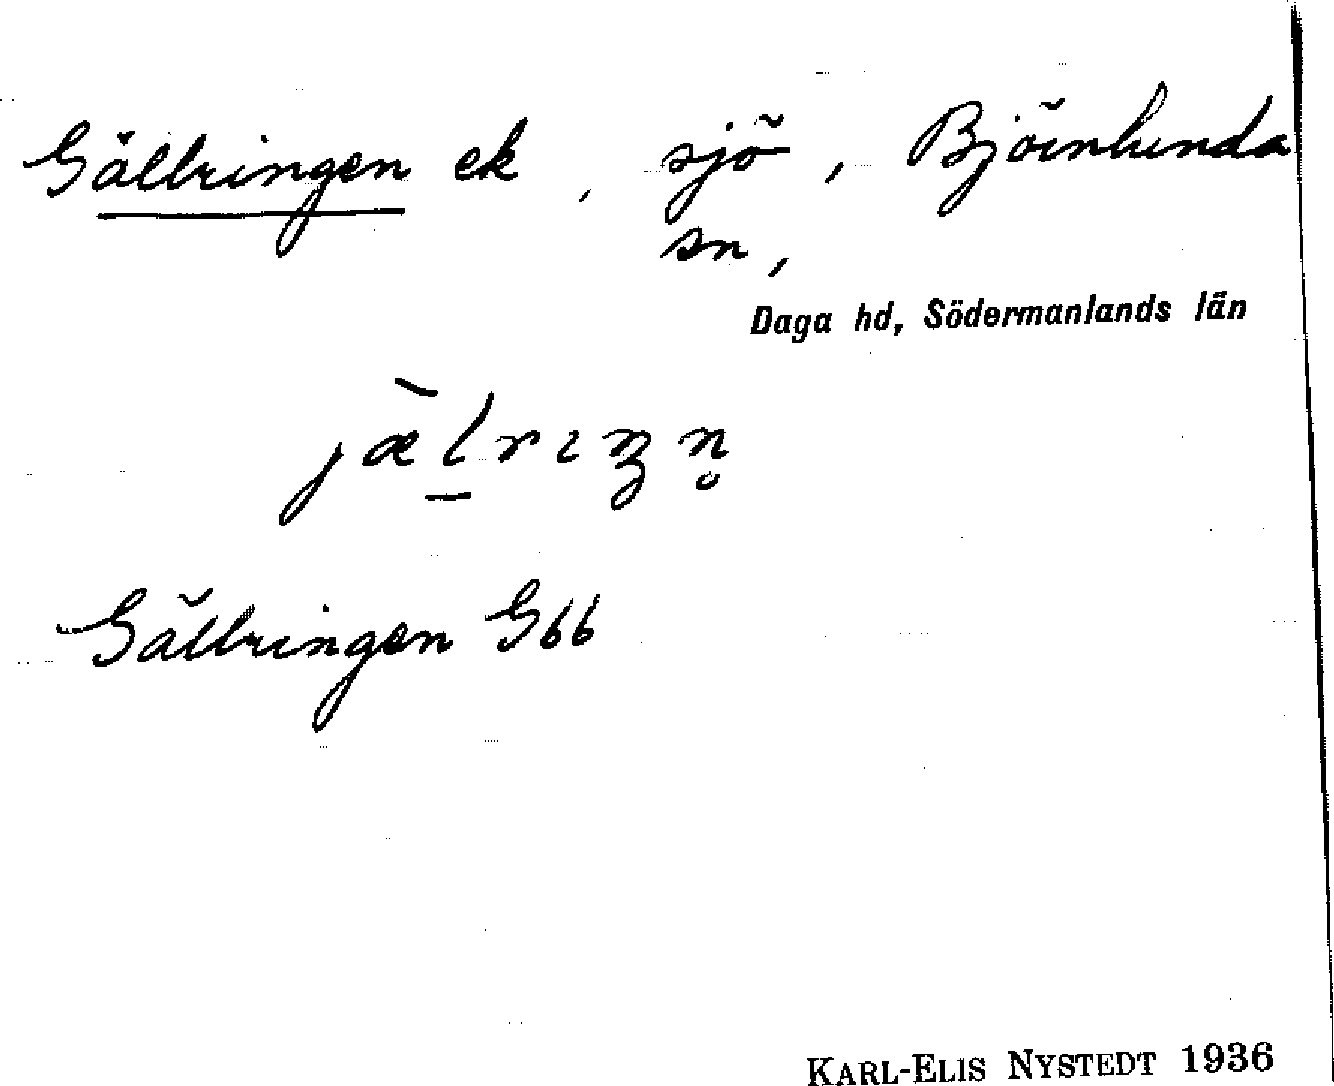 Gällringen ek, sjö, Björnlunda
sn,
Daga hd, Södermanlands län
jæ̀l̠rıŋn̥
Gällringen Gbb
KARL-ELIS NYSTEDT 1936